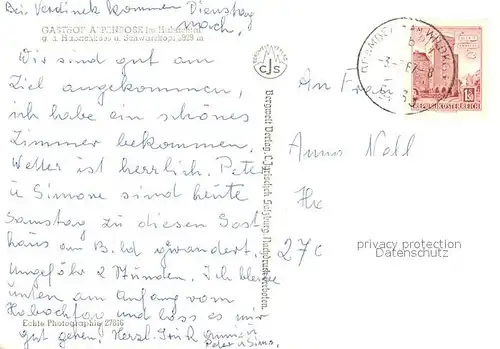 Bei Verdinek kommen Dienstag
nach,
GASTHOF ALPENROSE im Habachtal
g. d. Habachkees u. Schwarzkopf
Wir sind gut am
Ziel angekommen,
ich habe ein schönes
Zimmer bekommen.
Wetter ist herrlich. Peter
u Simone sind heute
Samstag zu diesen Gast
haus am Bild gwandert.
Ungefähr 2 Stunden. Ich bleibe
unten am Anfang vom
Habachtal und lass es mir
gut gehen. Herzl. Grüße
Peter u Simo.
Echte Photographie 27816
CJS
Bergwelt Verlag, C. Jurischek Salzburg, Nachdruck verboten.
REPUBLIK ÖSTERREICH
An Frau
Anna Nell
27c
privacy protection
Datenschutz